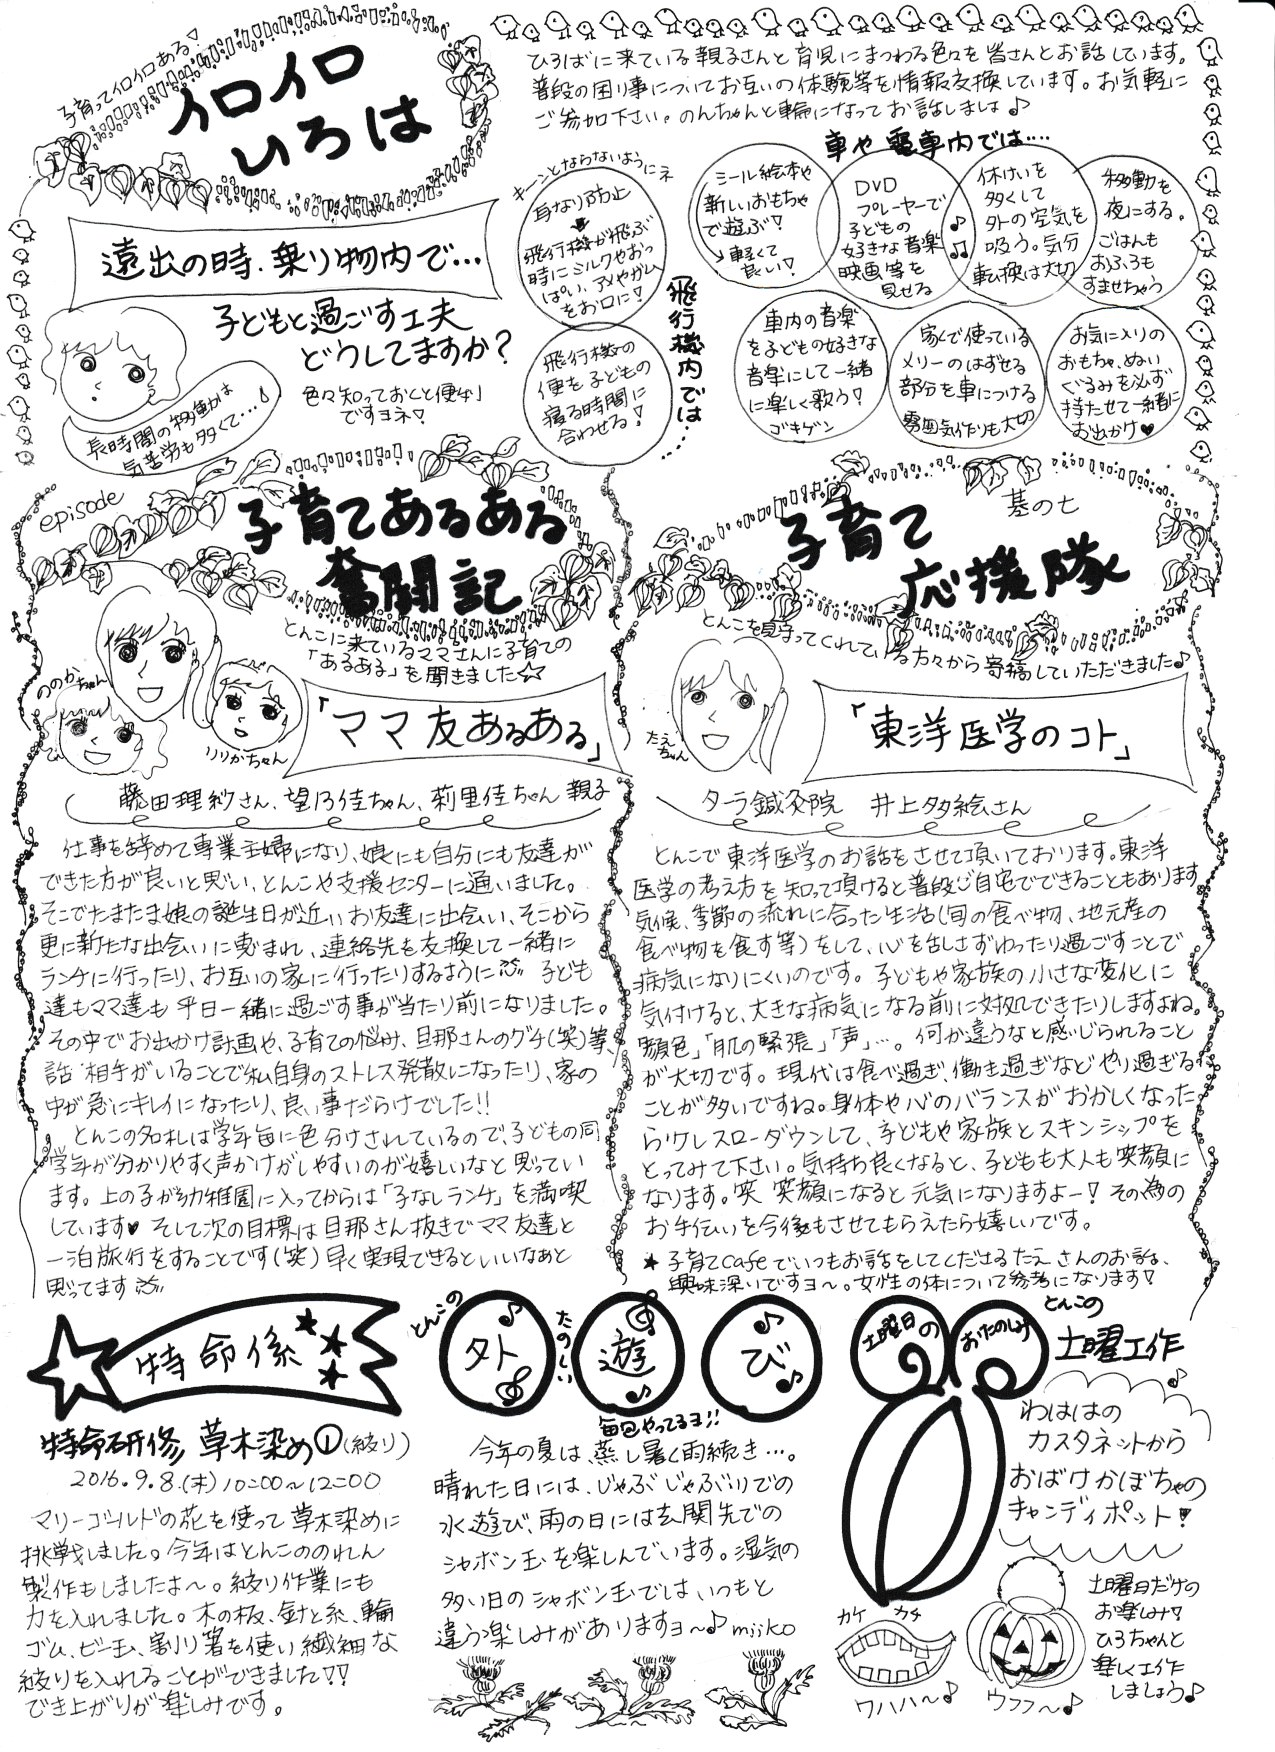 子育ってイロイロある♡
イロイロ
いろは
ひろばに来ている親子さんと育児にまつわる色々を皆さんとお話しています。
普段の困り事についてお互いの体験等を情報交換しています。お気軽に
ご参加下さい。のんちゃんと輪になってお話しましょ♪
遠出の時、乗り物内で…
子どもと過ごす工夫
どうしてますか？
色々知っておくと便利
ですヨネ!
長時間の移動は
気苦労も多くて…♪
キーンとならないようにネ
耳なり防止
飛行機が飛ぶ
時にミルクやおっ
ぱい、アメやガム
をお口に!
飛行機の
便を子どもの
寝る時間に
合わせる!
飛行機内では……
車や電車内では……
シール絵本や
新しいおもちゃ
で遊ぶ!
軽くて
良い!
DVD
プレーヤーで
子どもの
好きな音楽
映画等を
見せる
休けいを
多くして
外の空気を
吸う。気分
転換は大切
移動を
夜にする。
ごはんも
おふろも
すませちゃう
車内の音楽
を子どもの好きな
音楽にして一緒
に楽しく歌う!
ゴキゲン
家で使っている
メリーのはずせる
部分を車につける
雰囲気作りも大切
お気に入りの
おもちゃ、ぬい
ぐるみを必ず
持たせて一緒に
お出かけ♥
episode
子育てあるある
奮闘記
とんこに来ているママさんに子育ての
「あるある」を聞きました☆
ののかちゃん
りりかちゃん
「ママ友あるある」
藤田理紗さん、望乃佳ちゃん、莉里佳ちゃん親子
仕事を辞めて専業主婦になり、娘にも自分にも友達が
できた方が良いと思い、とんこや支援センターに通いました。
そこでたまたま娘の誕生日が近いお友達に出会い、そこから
更に新たな出会いに恵まれ、連絡先を交換して一緒に
ランチに行ったり、お互いの家に行ったりするように 子ども
達もママ達も平日一緒に過ごす事が当たり前になりました。
その中でお出かけ計画や、子育ての悩み、旦那さんのグチ(笑)等、
話相手がいることで私自身のストレス発散になったり、家の
中が急にキレイになったり、良い事だらけでした!!
とんこの名札は学年毎に色分けされているので、子どもの同
学年が分かりやすく声かけがしやすいのが嬉しいなと思ってい
ます。上の子が幼稚園に入ってからは「子なしランチ」を満喫
しています♥ そして次の目標は旦那さん抜きでママ友達と
一泊旅行をすることです(笑)早く実現できるといいなぁと
思ってます
基の七
子育て
応援隊
とんこを見守ってくれている方々から寄稿していただきました♪
たえちゃん
「東洋医学のコト」
ターラ鍼灸院 井上多絵さん
とんこで東洋医学のお話をさせて頂いております。東洋
医学の考え方を知って頂けると普段ご自宅でできることもあります
気候、季節の流れに合った生活(旬の食べ物、地元産の
食べ物を食す等)をして、心を乱さずゆったり過ごすことで
病気になりにくいのです。子どもや家族の小さな変化に
気付けると、大きな病気になる前に対処できたりしますよね。
「顔色」「肌の緊張」「声」…。何か違うなと感じられること
が大切です。現代は食べ過ぎ、働き過ぎなどやり過ぎる
ことが多いですね。身体や心のバランスがおかしくなった
ら少しスローダウンして、子どもや家族とスキンシップを
とってみて下さい。気持ち良くなると、子どもも大人も笑顔に
なります。笑 笑顔になると元気になりますよー! その為の
お手伝いを今後もさせてもらえたら嬉しいです。
★子育てcafeでいつもお話をしてくださるたえさんのお話、
興味深いですヨ〜。女性の体について参考になります!
特命係
特命研修 草木染め①(絞り)
2016.9.8.(木)10:00〜12:00
マリーゴールドの花を使って草木染めに
挑戦しました。今年はとんこののれん
製作もしましたよ〜。絞り作業にも
力を入れました。木の板、針と糸、輪
ゴム、ビー玉、割り箸を使い繊細な
絞りを入れることができました!!
でき上がりが楽しみです。
とんこの
外
たのしい
遊
び
毎回やってるヨ!!
今年の夏は、蒸し暑く雨続き…。
晴れた日には、じゃぶじゃぶ池での
水遊び、雨の日には玄関先での
シャボン玉を楽しんでいます。湿気の
多い日のシャボン玉ではいつもと
違う楽しみがありますヨ〜♪ miiko
土曜日の
おたのしみ
とんこの
土曜工作
わははの
カスタネットから
おばけかぼちゃの
キャンディポット!
カケ カチ
ワハハ〜♪
ウフフ〜♪
土曜日だけの
お楽しみ!
ひろちゃんと
楽しく工作
しましょう♪